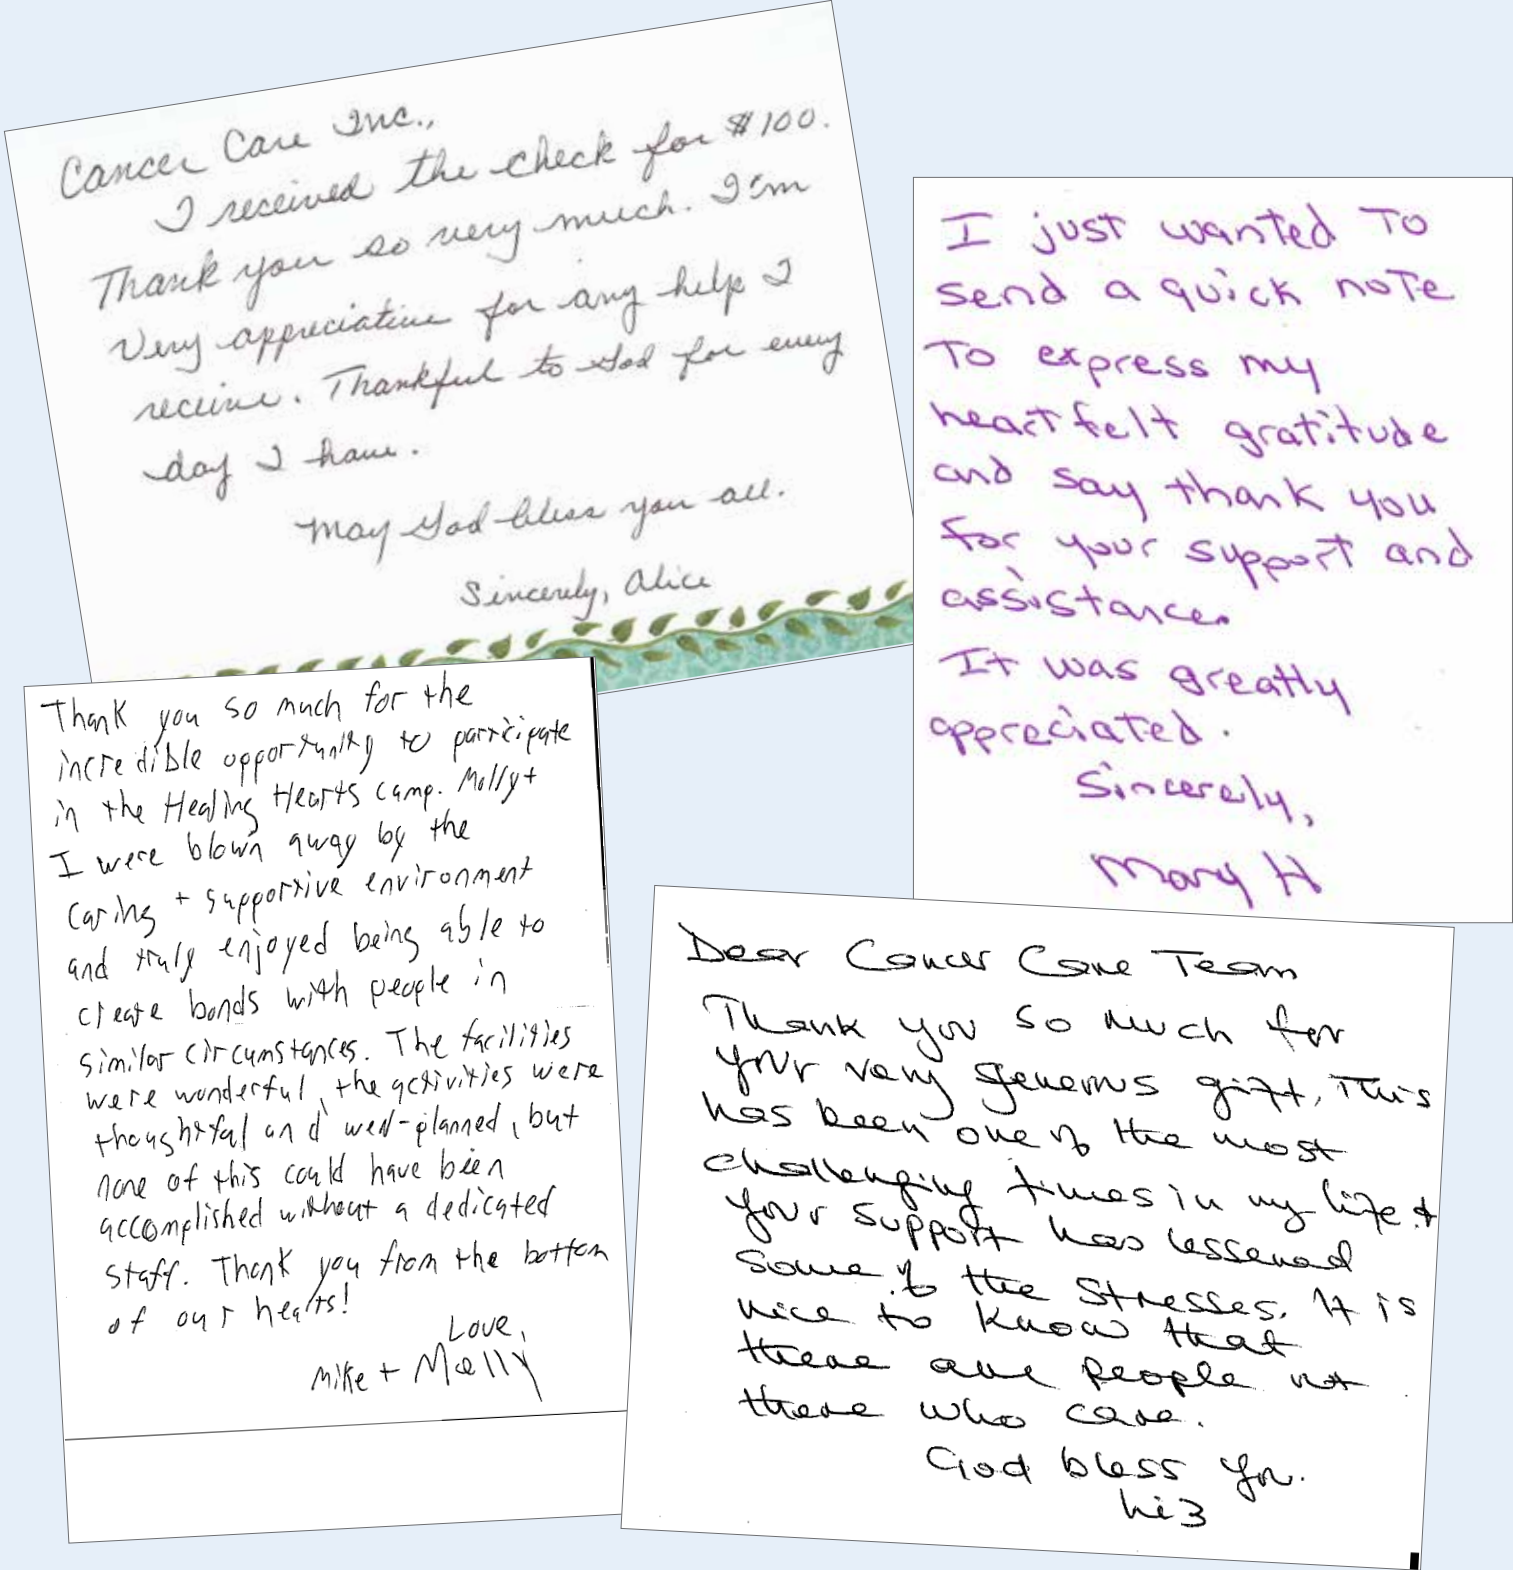 Cancer Care Inc.,
I received the check for $100.
Thank you so very much. I'm
very appreciative for any help I
receive. Thankful to God for every
day I have.
May God bless you all.
Sincerely, Alice
I just wanted To
send a quick noTe
To express my
heartfelt gratitude
and say thank you
for your support and
assistance.
It was greatly
appreciated.
Sincerely,
Mary H
Thank you so much for the
incredible opportunity to participate
in the Healing Hearts camp. Molly +
I were blown away by the
caring + supportive environment
and truly enjoyed being able to
create bonds with people in
similar circumstances. The facilities
were wonderful, the activities were
thoughtful and well-planned, but
none of this could have been
accomplished without a dedicated
staff. Thank you from the bottom
of our hearts!
Love,
Mike + Molly
Dear Cancer Care Team
Thank you so much for
your very generous gift. This
has been one of the most
challenging times in my life &
your support has lessened
some of the stresses. It is
nice to know that
there are people out
there who care.
God bless you.